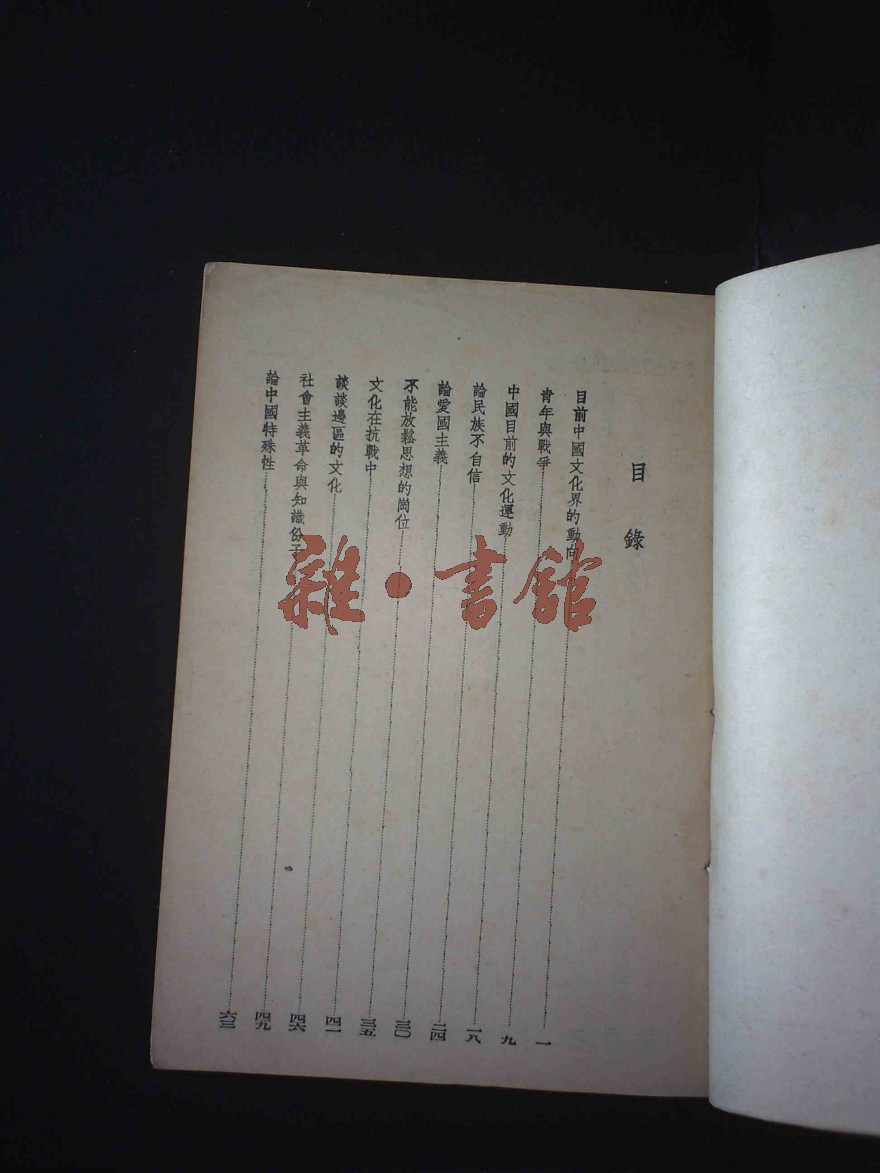 目錄
目前中國文化界的動向……一
青年與戰爭……九
中國目前的文化運動……一八
論民族不自信……二四
論愛國主義……三〇
不能放鬆思想的崗位……三五
文化在抗戰中……四一
談談邊區的文化……四六
社會主義革命與知識份子……四九
論中國特殊性……六三
雜·書館